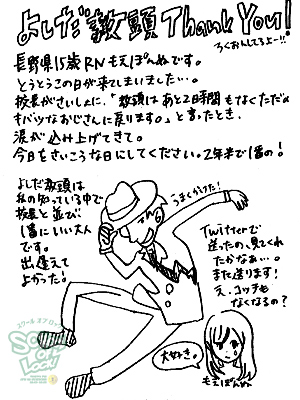 よしだ教頭 Thank You!
ろくおんしてるよー!!
長野県15歳RNもえぽんぬです。
とうとうこの日が来てしまいました…。
校長がさいしょに、「教頭はあと2時間もなくただの
キバツなおじさんに戻ります。」と言ったとき、
涙が込み上げてきて。
今日をさいこうな日にしてください。2年半で1番の!
よしだ教頭は
私の知っている中で
校長と並ぶ
1番にいい大人
です。
出逢えて
よかった!
うまくかけた!
Twitterで
送ったの、見てくれ
たかなぁ…。
また送ります!
え、コッチも
なくなるの?
大好き。
もえぽんぬ
スクール オブ ロック
SCHOOL OF LOCK!